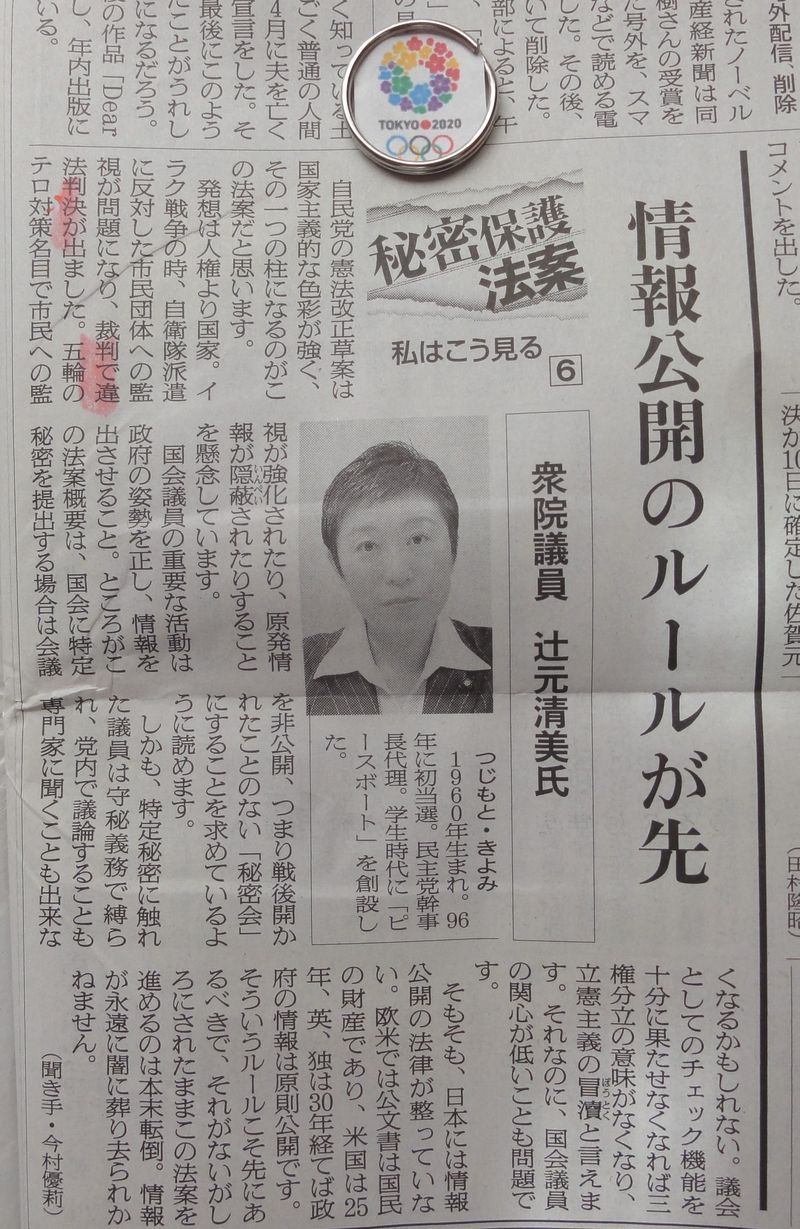 外配信、削除
されたノーベル
樹さんの受賞を
産経新聞は同
た号外を、スマ
などで読める電
した。その後、
いて削除した。
部によると、午
く知っている土
ごく普通の人間
4月に夫を亡く
宣言をした。そ
最後にこのよう
たことがうれし
になるだろう。
の作品「Dear
し、年内出版に
いる。
TOKYO 2020
コメントを出した。
決が10日に確定した佐賀元
(田村隆昭)
情報公開のルールが先
秘密保護
法案
私はこう見る
6
衆院議員 辻元清美氏
つじもと・きよみ
1960年生まれ。96
年に初当選。民主党幹事
長代理。学生時代に「ピ
ースボート」を創設し
た。
自民党の憲法改正草案は
国家主義的な色彩が強く、
その一つの柱になるのがこ
の法案だと思います。
発想は人権より国家。イ
ラク戦争の時、自衛隊派遣
に反対した市民団体への監
視が問題になり、裁判で違
法判決が出ました。五輪の
テロ対策名目で市民への監
視が強化されたり、原発情
報が隠蔽されたりすること
いんぺい
を懸念しています。
国会議員の重要な活動は
政府の姿勢を正し、情報を
出させること。ところがこ
の法案概要は、国会に特定
秘密を提出する場合は会議
を非公開、つまり戦後開か
れたことのない「秘密会」
にすることを求めているよ
うに読めます。
しかも、特定秘密に触れ
た議員は守秘義務で縛ら
れ、党内で議論することも
専門家に聞くことも出来な
くなるかもしれない。議会
としてのチェック機能を
十分に果たせなくなれば三
権分立の意味がなくなり、
立憲主義の冒瀆と言えま
ぼうとく
す。それなのに、国会議員
の関心が低いことも問題で
す。
そもそも、日本には情報
公開の法律が整っていな
い。欧米では公文書は国民
の財産であり、米国は25
年、英、独は30年経てば政
府の情報は原則公開です。
そういうルールこそ先にあ
るべきで、それがないがし
ろにされたままこの法案を
進めるのは本末転倒。情報
が永遠に闇に葬り去られか
ねません。
(聞き手・今村優莉)